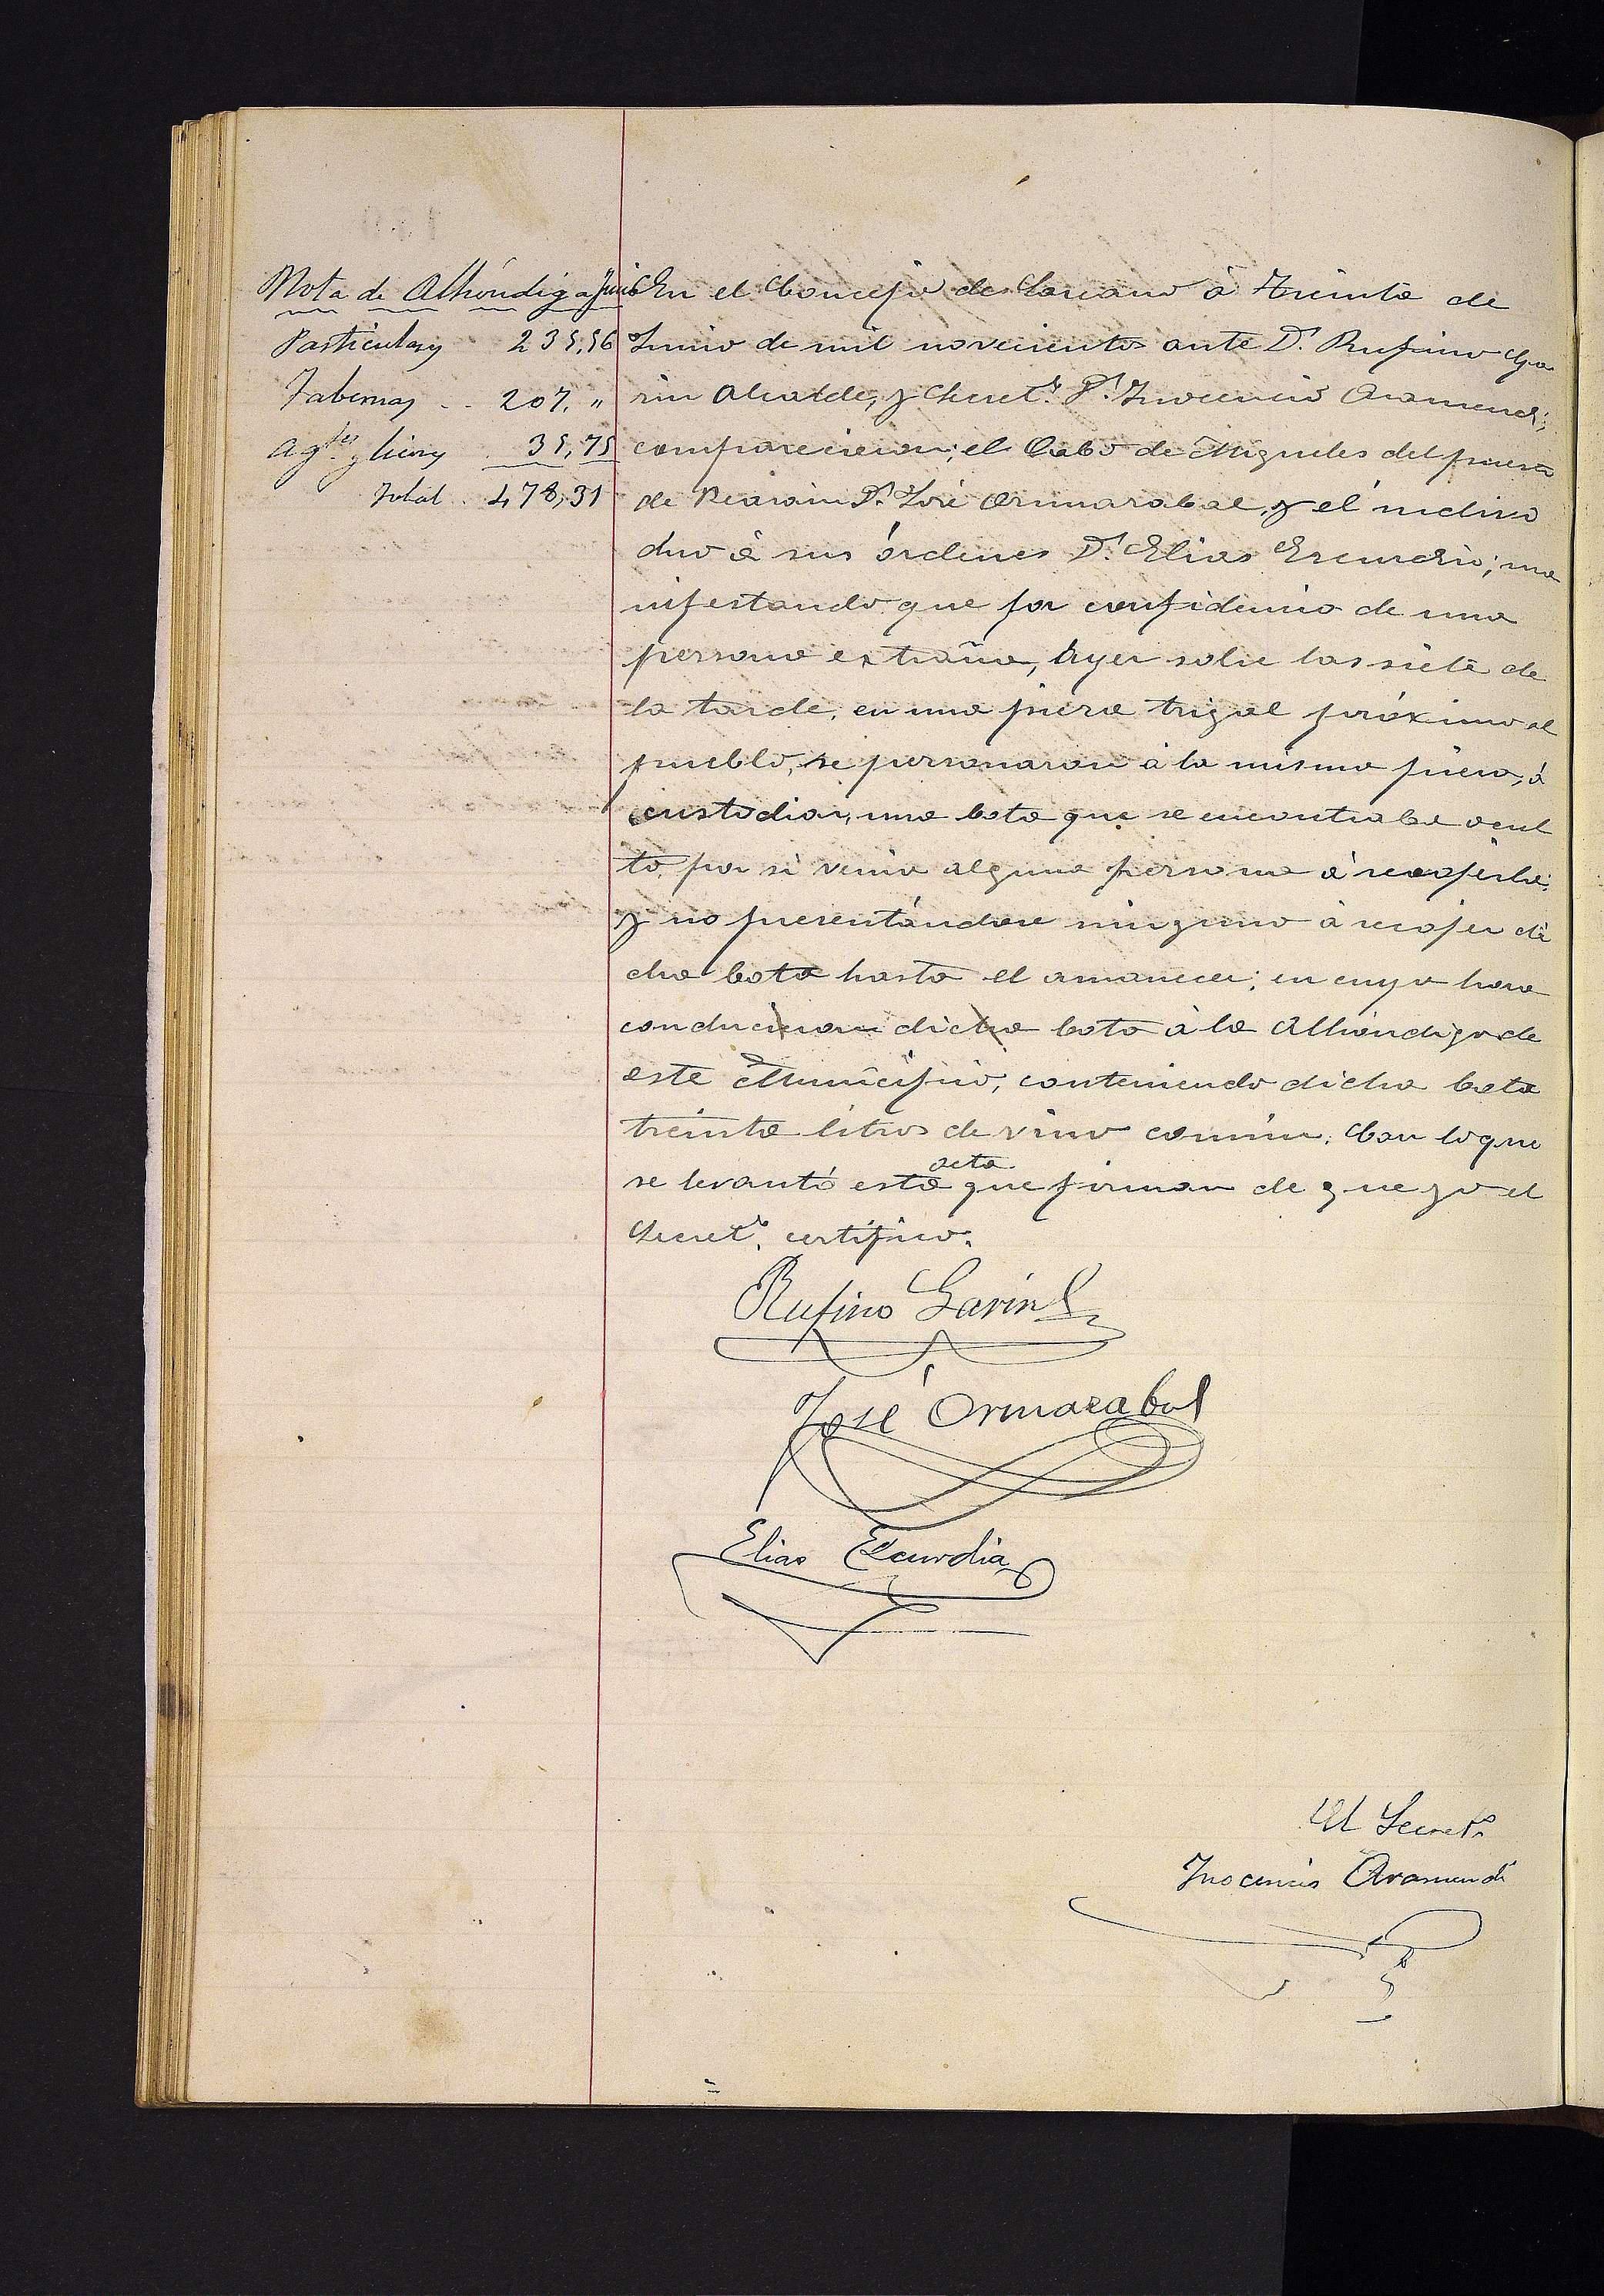 Nota de Alhóndiga Junio
Particulares 235,56
Tabernas .. 207, "
Agtes y licores . 35,75
Total . 478,31
En el Concejo de Lezauno á treinta de
Junio de mil novecientos ante Dn. Rufino Ga
rin Alcalde, y Secreto. Dn. Inocencio Aramendi;
comparecieron; el Cabo de Migueletes del puesto
de Beasain Dn. José Ormazabal, y el indivi
duo á sus órdenes Dn. Elias Escurdia; ma
nifestando que por confidencia de una
persona extraña, Ayer sobre las siete de
la tarde, en una pieza trigal próximo al
pueblo, se personaron á la misma pieza, á
custodiar, una bota que se encontraba ocul
ta, por si venia alguna persona á recojerla;
y no presentándose ninguno á recojer di
cha bota hasta el amanecer; en cuya hora
condujeron dicha bota á la Alhóndiga de
este Municipio, conteniendo dicha bota
treinta litros de vino comun. Con lo que
se levantó esta acta que firman de que yo el
Secreto. certifico.
Rufino Garin
José Ormazabal
Elias Escurdia
El Secreto.
Inocencio Aramendi